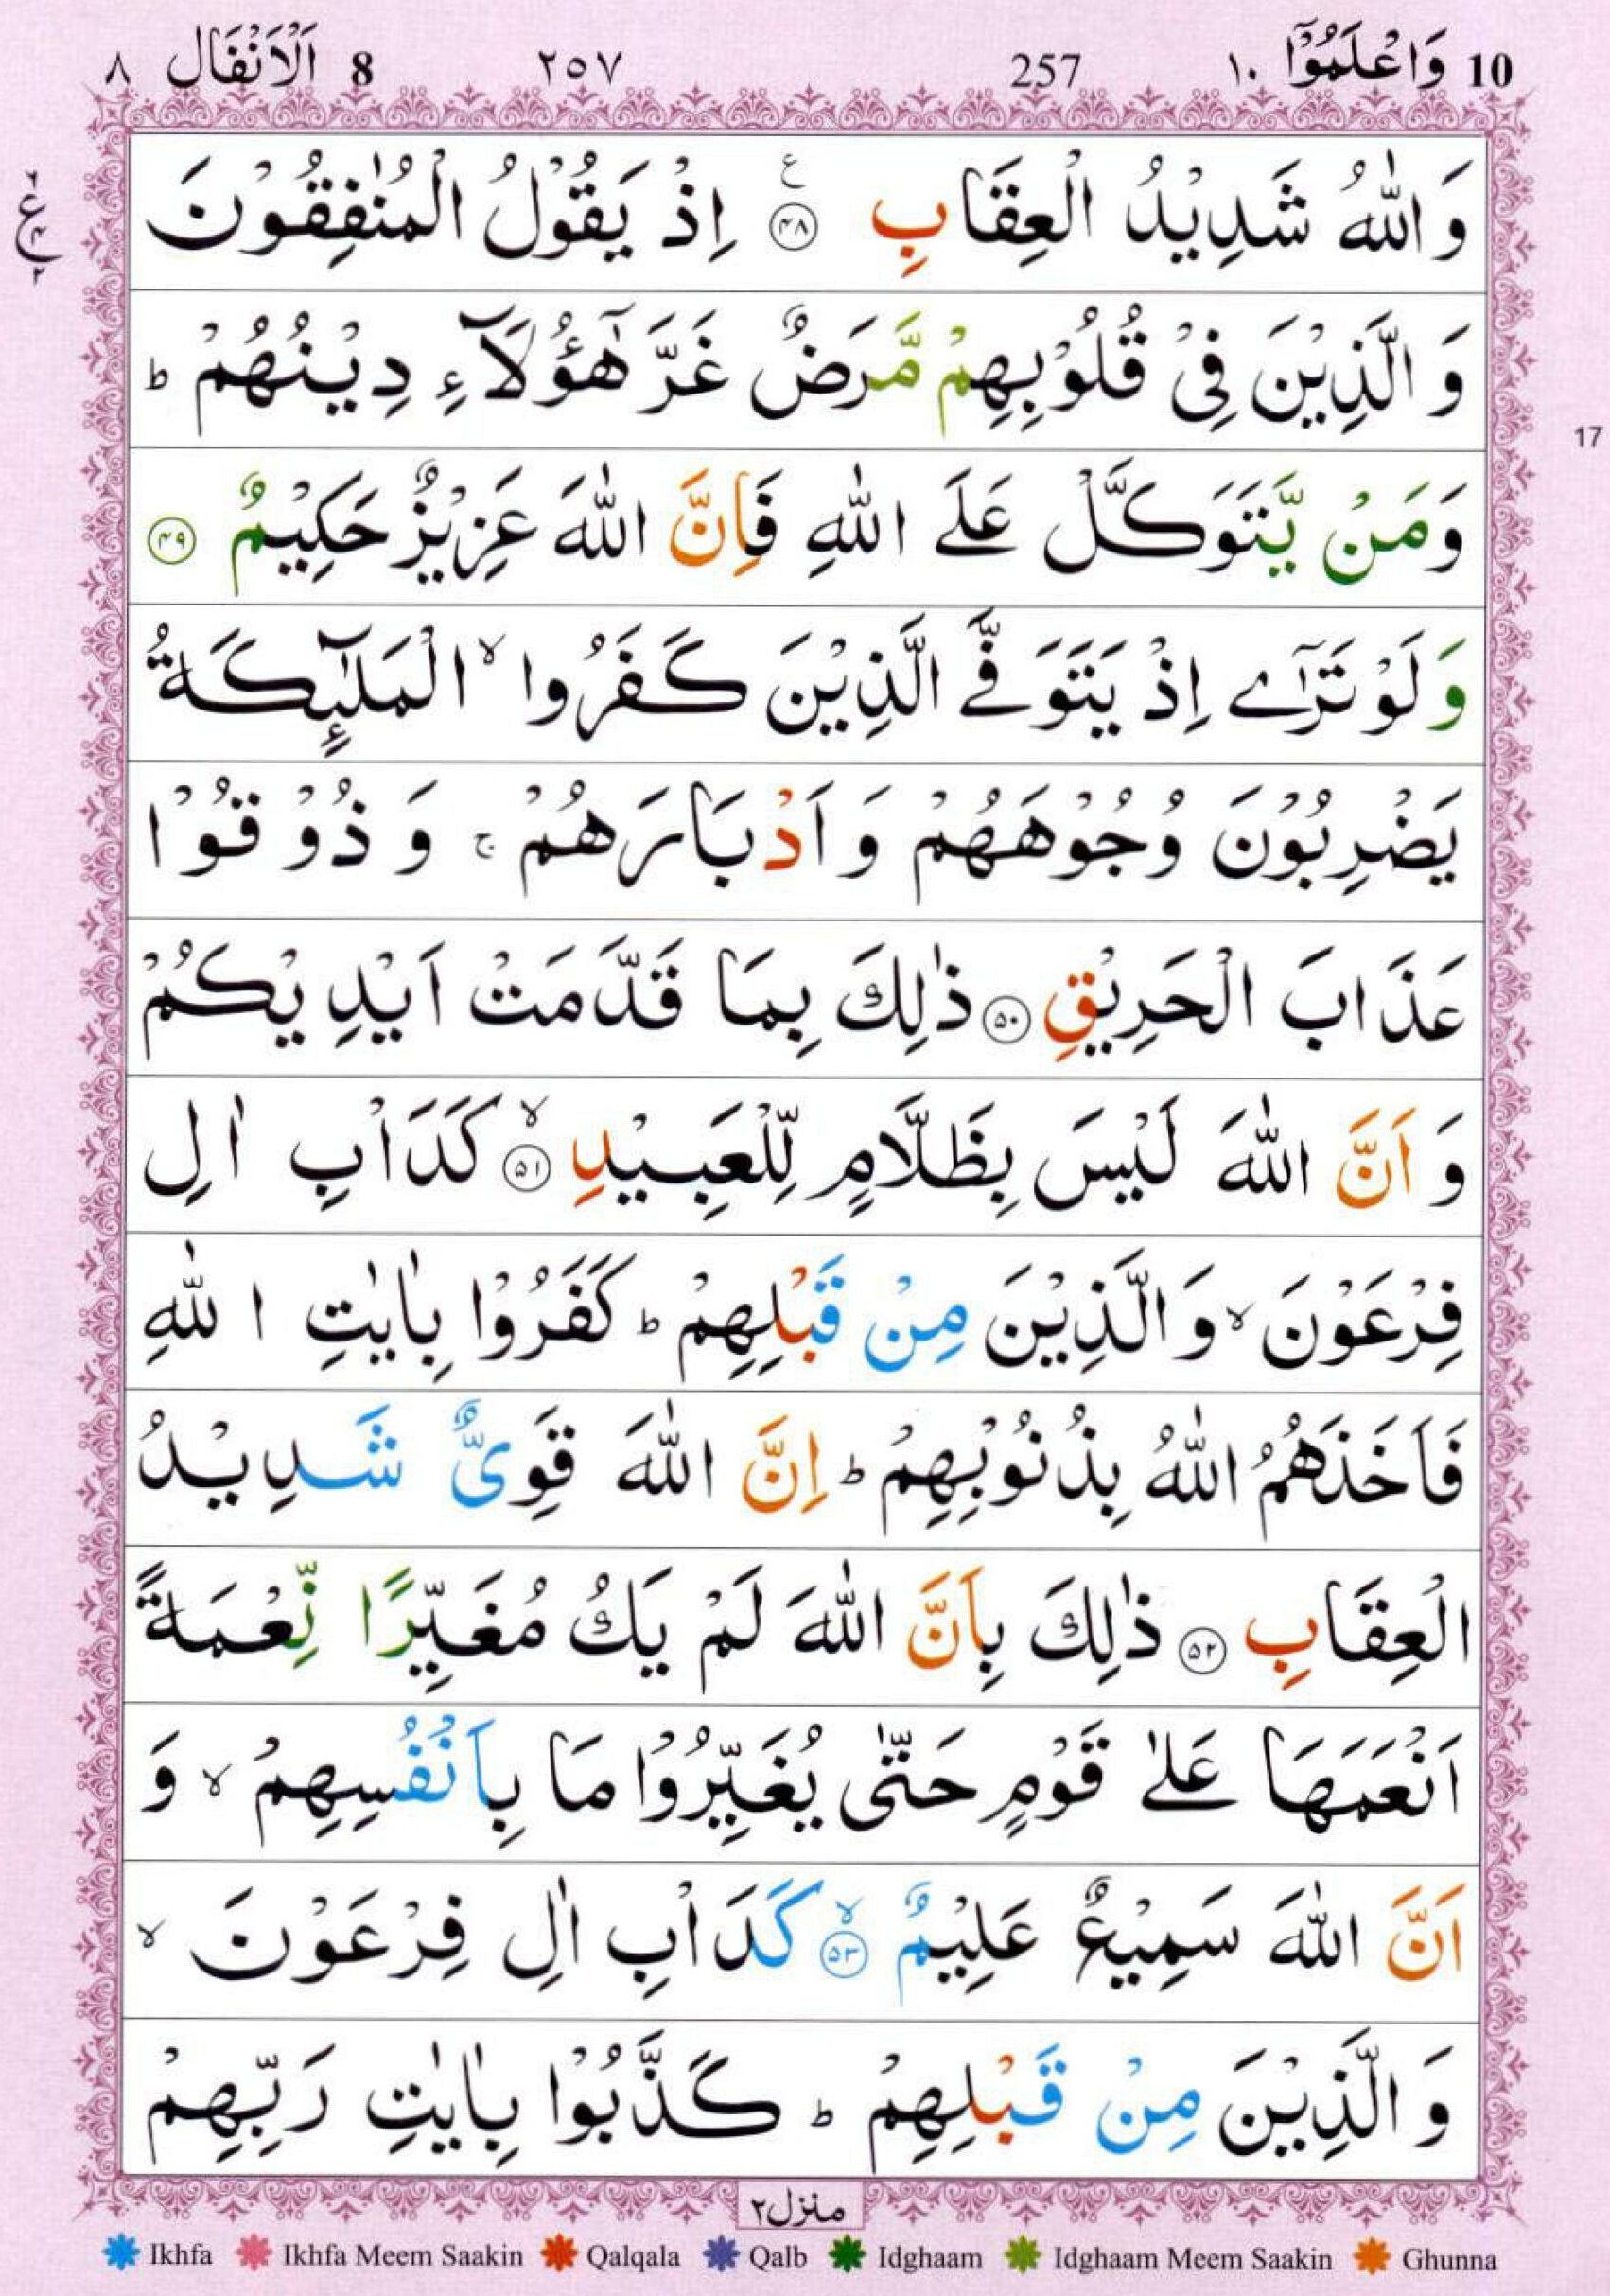 10 وَاعْلَمُوْٓا ١٠ 257 ٢٥٧ 8 اَلْاَنْفَال ٨
وَاللّٰهُ شَدِيْدُ الْعِقَابِ ۴۸ ع اِذْ يَقُوْلُ الْمُنٰفِقُوْنَ
ع
وَ الَّذِيْنَ فِىْ قُلُوْبِهِمْ مَّرَضٌ غَرَّ هٰٓؤُلَآءِ دِيْنُهُمْ ؕ
17
وَمَنْ يَّتَوَكَّلْ عَلَى اللّٰهِ فَاِنَّ اللّٰهَ عَزِيْزٌ حَكِيْمٌ ۴۹
وَ لَوْ تَرٰٓى اِذْ يَتَوَفَّى الَّذِيْنَ كَفَرُوا ۙ الْمَلٰٓئِكَةُ
يَضْرِبُوْنَ وُجُوْهَهُمْ وَ اَدْبَارَهُمْ ۚ وَ ذُوْقُوْا
عَذَابَ الْحَرِيْقِ ۵۰ ذٰلِكَ بِمَا قَدَّمَتْ اَيْدِيْكُمْ
وَ اَنَّ اللّٰهَ لَيْسَ بِظَلَّامٍ لِّلْعَبِيْدِ ۙ ۵۱ كَدَاْبِ اٰلِ
فِرْعَوْنَ ۙ وَ الَّذِيْنَ مِنْ قَبْلِهِمْ ؕ كَفَرُوْا بِاٰيٰتِ اللّٰهِ
فَاَخَذَهُمُ اللّٰهُ بِذُنُوْبِهِمْ ؕ اِنَّ اللّٰهَ قَوِىٌّ شَدِيْدُ
الْعِقَابِ ۵۲ ذٰلِكَ بِاَنَّ اللّٰهَ لَمْ يَكُ مُغَيِّرًا نِّعْمَةً
اَنْعَمَهَا عَلٰى قَوْمٍ حَتّٰى يُغَيِّرُوْا مَا بِاَنْفُسِهِمْ ۙ وَ
اَنَّ اللّٰهَ سَمِيْعٌ عَلِيْمٌ ۙ ۵۳ كَدَاْبِ اٰلِ فِرْعَوْنَ ۙ
وَ الَّذِيْنَ مِنْ قَبْلِهِمْ ؕ كَذَّبُوْا بِاٰيٰتِ رَبِّهِمْ
منزل ٢
Ikhfa Ikhfa Meem Saakin Qalqala Qalb Idghaam Idghaam Meem Saakin Ghunna